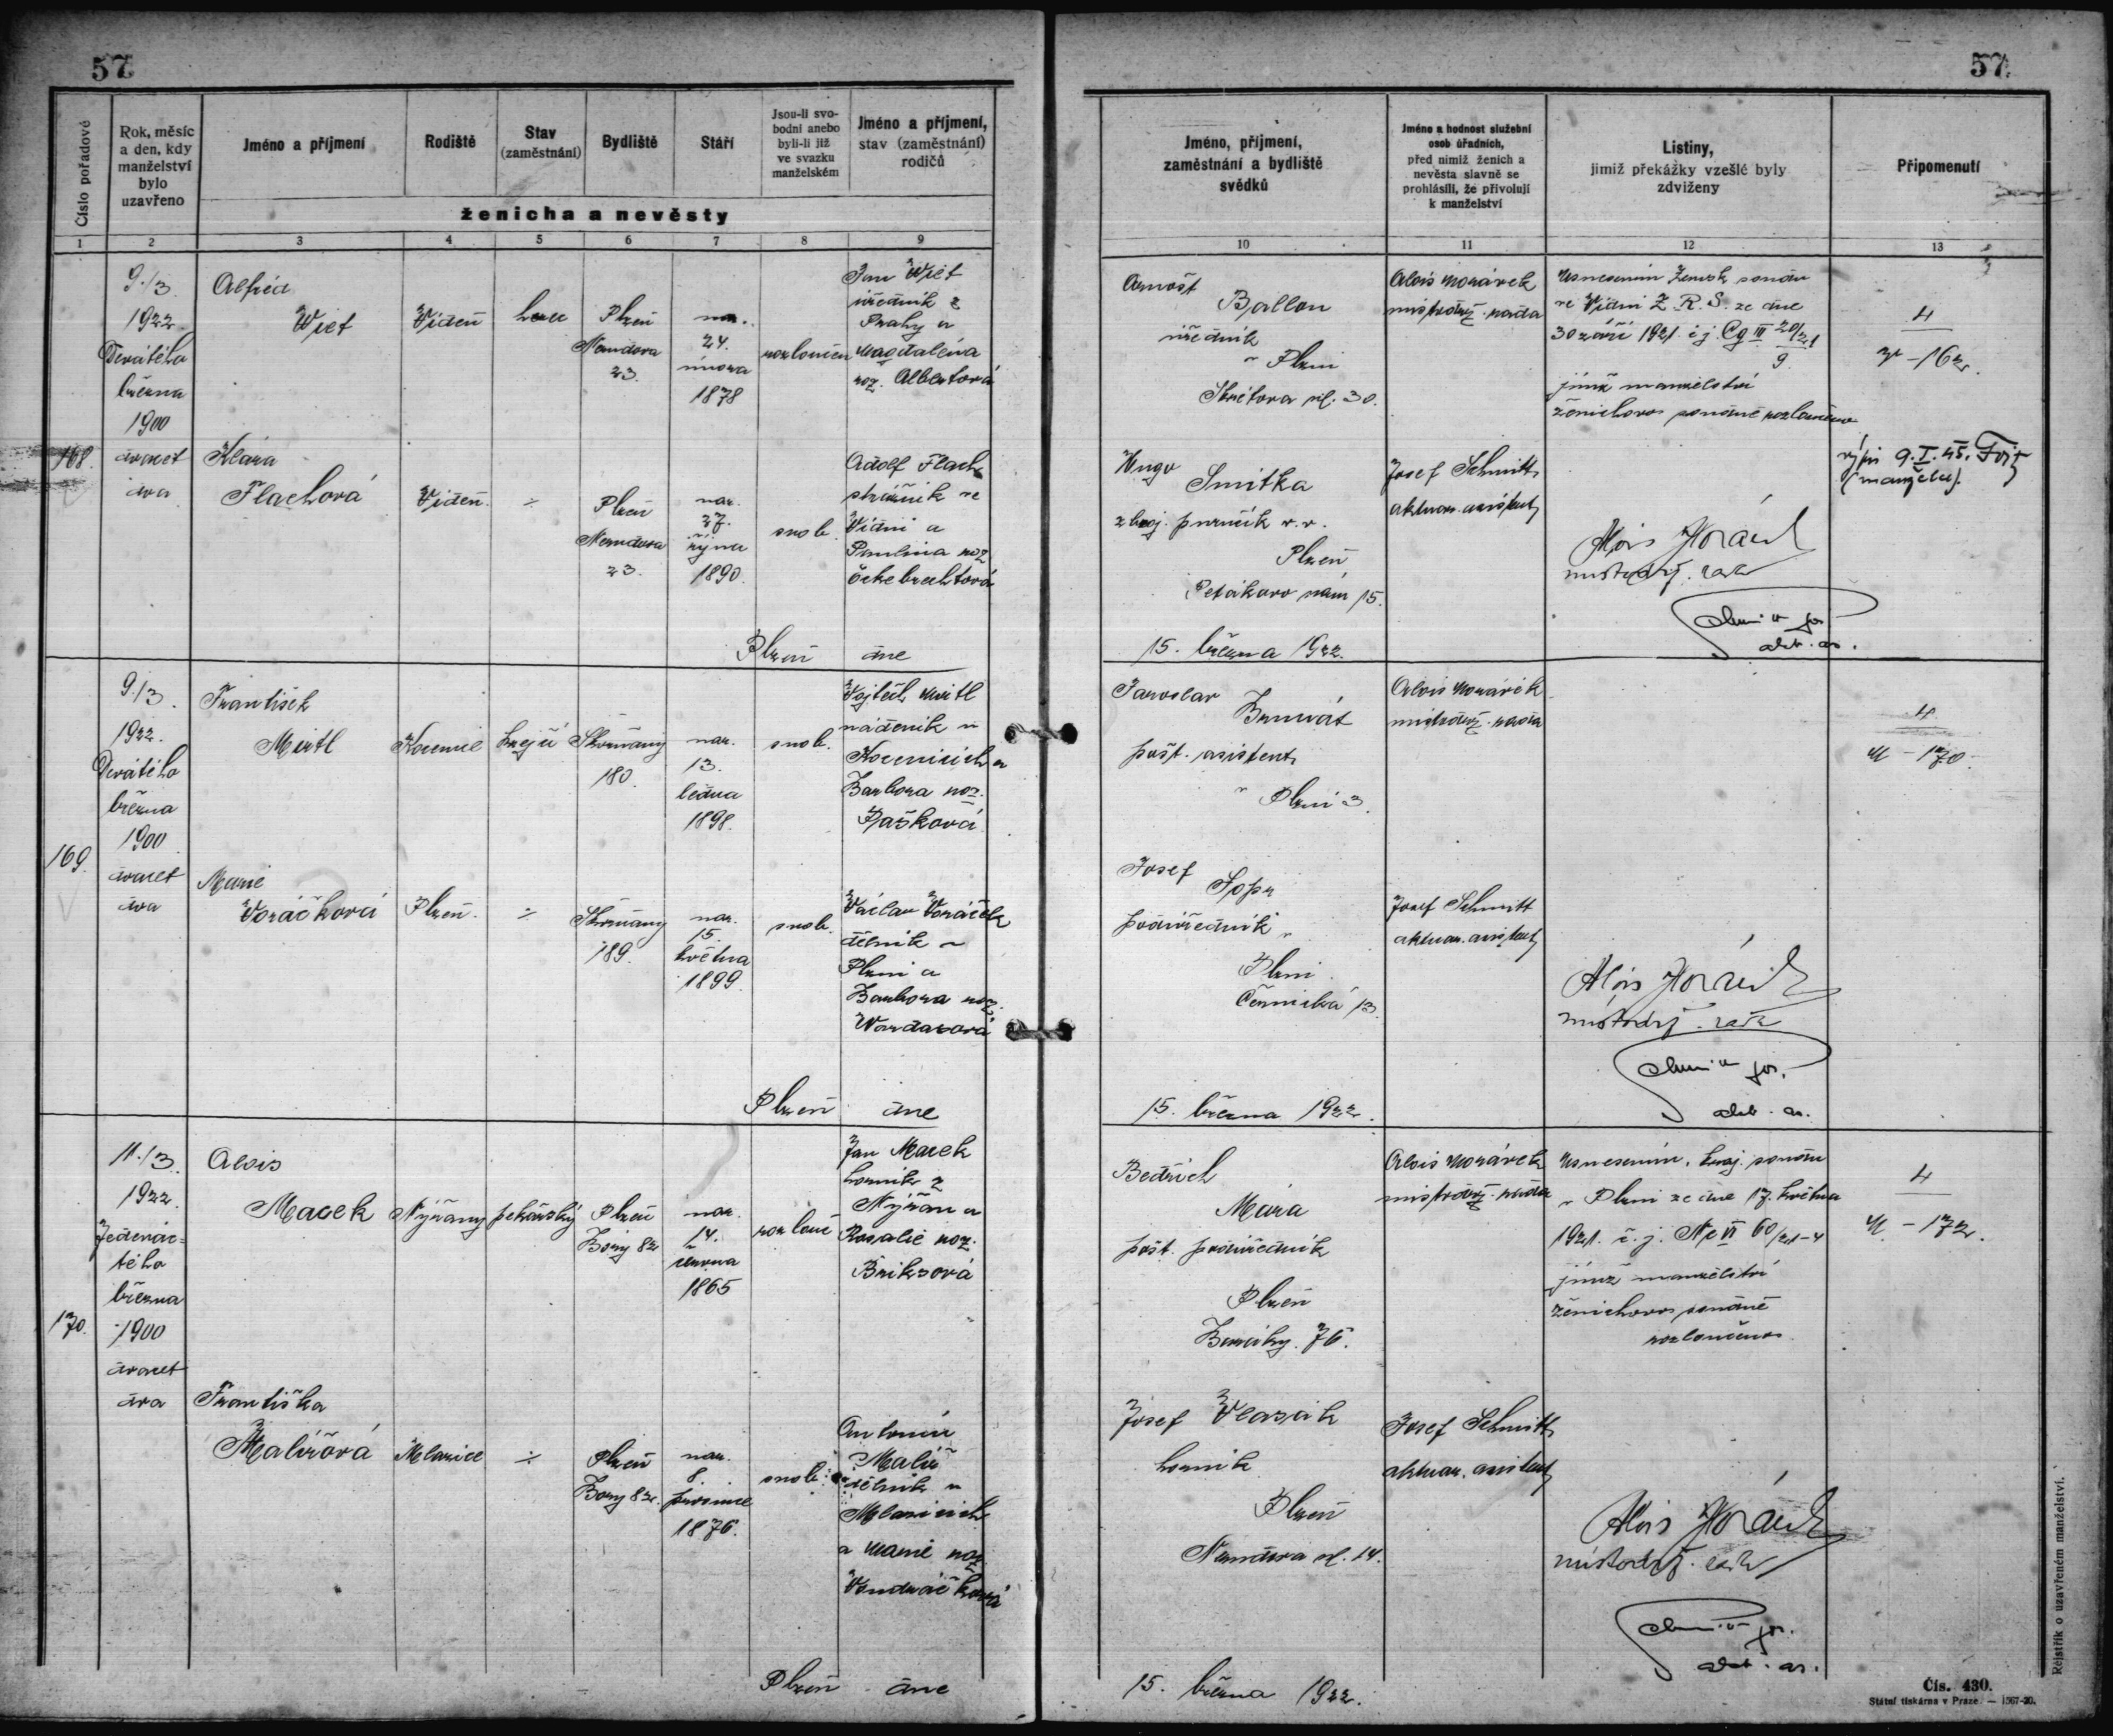 57.
57.
Číslo pořadové
Rok, měsíc a den, kdy manželství bylo uzavřeno
Jméno a příjmení
Rodiště
Stav (zaměstnání)
Bydliště
Stáří
Jsou-li svobodni anebo byli-li již ve svazku manželském
Jméno a příjmení, stav (zaměstnání) rodičů
ženicha a nevěsty
1 2 3 4 5 6 7 8 9
Jméno, příjmení, zaměstnání a bydliště svědků
Jméno a hodnost služební osob úřadních, před nimiž ženich a nevěsta slavně se prohlásili, že přivolují k manželství
Listiny, jimiž překážky vzešlé byly zdviženy
Připomenutí
10 11 12 13
168.
9./3.
1922
Devátého
března
1900
dvacet
dva
Alfred
Wiet
Vídeň
herec
Plzeň
Nerudova
23.
nar.
24.
února
1878
rozloučen
Jan Wiet
úředník z
Prahy a
Magdaléna
roz. Albertová
Klára
Flachová
Vídeň.
÷
Plzeň
Nerudova
23.
nar.
27.
října
1890.
svob.
Adolf Flach
strážník ve
Vídni a
Paulina roz
Plzeň dne
Arnošt
Ballon
úředník
v Plzni
Skrétova ul. 30.
Alois Horáček
místodrž. rada
Usnesením Zemsk soudu
ve Vídni Z. R. S. ze dne
30 září 1921 č j. Cg III 20/21
9
jímž manželství
ženichovo soudně rozloučeno
4
162.
Hugo
Smitka
poručík v. v.
Plzeň
Petákovo nám 15.
Josef Schmitt
aktuar. asistent
výpis 9. I. 45.
(manželů).
Alois Horáček
místodrž. rada
akt. as.
15. března 1922.
169.
9./3.
1922.
Devátého
března
1900
dvacet
dva
František
Meitl
krejčí
Skvrňany
180.
nar.
13.
ledna
1898.
svob.
Vojtěch Meitl
nádeník v
Barbora roz.
Pašková
Marie
Voráčková
Plzeň.
÷
Skvrňany
189.
nar.
15.
května
1899.
svob.
Václav Voráček
dělník v
Plzni a
Barbora roz.
Plzeň dne
Jaroslav
pošt. asistent
v Plzni 3
Alois Horáček
místodrž. rada
4
170.
Josef
podúředník v
Plzni
Černická 13.
Josef Schmitt
aktuar. asistent
Alois Horáček
místodrž. rada
akt. as.
15. března 1922.
170.
11./3.
1922.
Jedenác-
tého
března
1900
dvacet
dva
Alois
Macek
Nýřany
pekařský
Plzeň
Bory 82
nar.
14.
června
1865
rozlouč
Jan Macek
horník z
Nýřan a
Rosalie roz.
Briksová
Františka
Malířová
÷
Plzeň
Bory 82.
nar.
8.
prosince
1876.
svob.
Antonín
Malíř
dělník v
a Marie roz
Vondráčková
Plzeň dne
Bedřich
pošt. podúředník
Plzeň
76.
Alois Horáček
místodrž. rada
Usnesením kraj. soudu
v Plzni ze dne 17. května
1921. č. j. Nc VI 60/21-4
jímž manželství
ženichovo soudně
rozloučeno
4
172.
Josef Vlasák
horník
Plzeň
Nerudova ul. 14.
Josef Schmitt
aktuar. asistent
Alois Horáček
místodrž. rada
akt. as.
15. března 1922.
Rejstřík o uzavřeném manželství.
Čís. 430.
Státní tiskárna v Praze. — 1567-20.